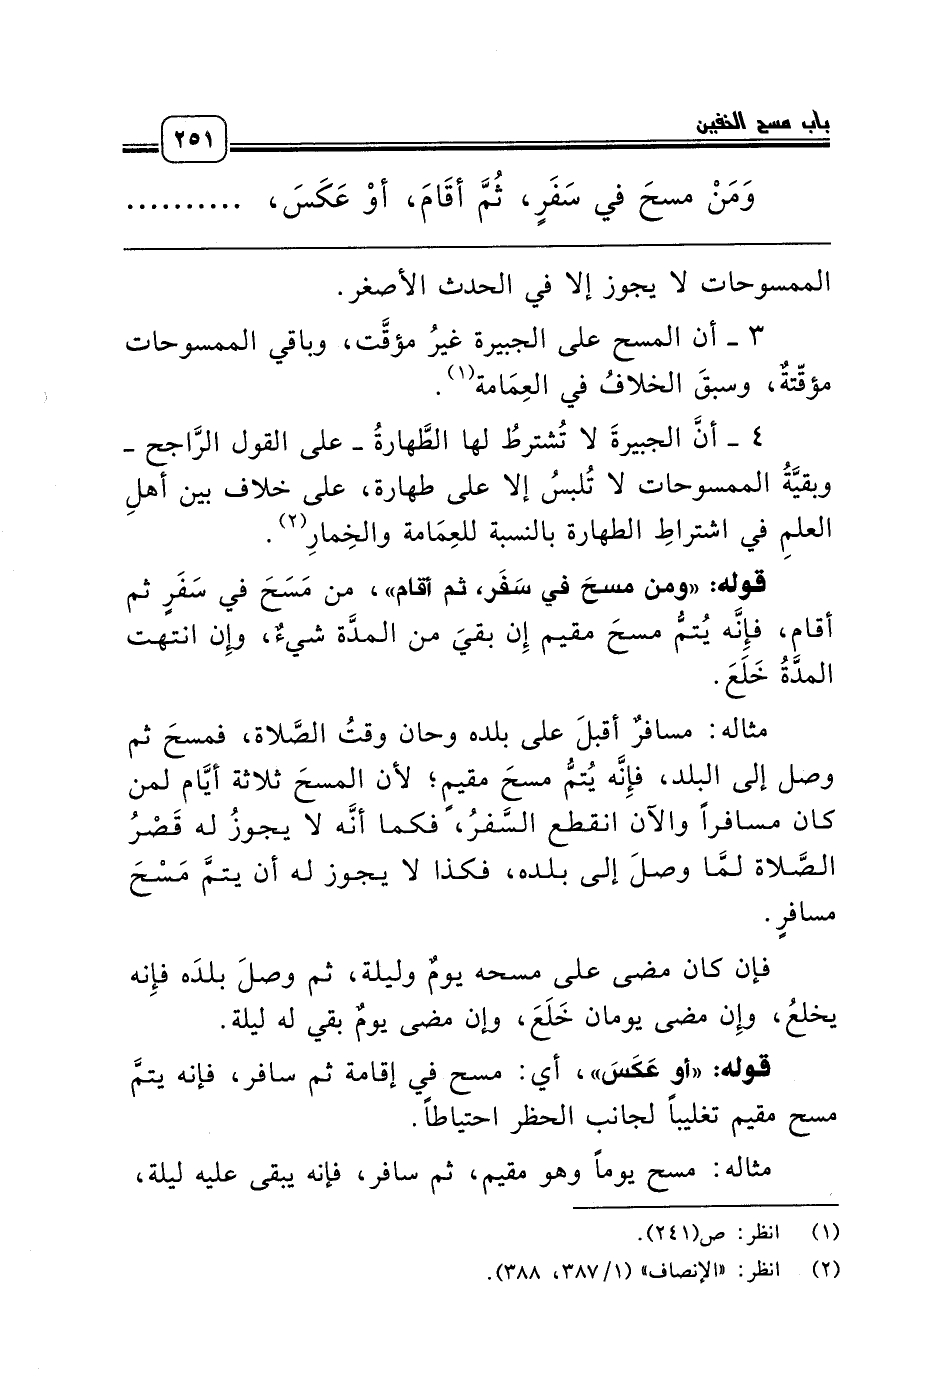 باب مسح الخفين
٢٥١
وَمَنْ مسحَ في سَفَرٍ، ثُمَّ أقَامَ، أوْ عَكَسَ، ..........
الممسوحات لا يجوز إلا في الحدث الأصغر.
٣ ـ أن المسح على الجبيرة غيرُ مؤقَّت، وباقي الممسوحات
مؤقّتةٌ، وسبقَ الخلافُ في العِمَامة(١).
٤ ـ أنَّ الجبيرةَ لا تُشترطُ لها الطَّهارةُ ـ على القول الرَّاجح ـ
وبقيَّةُ الممسوحات لا تُلبسُ إلا على طهارة، على خلاف بين أهلِ
العلمِ في اشتراطِ الطهارة بالنسبة للعِمَامة والخِمارِ(٢).
قوله: «ومن مسحَ في سَفَر، ثم أقام»، من مَسَحَ في سَفَرٍ ثم
أقام، فإِنَّه يُتمُّ مسحَ مقيم إِن بقيَ من المدَّة شيءٌ، وإِن انتهت
المدَّةُ خَلَعَ.
مثاله: مسافرٌ أقبلَ على بلده وحان وقتُ الصَّلاة، فمسحَ ثم
وصل إلى البلد، فإِنَّه يُتمُّ مسحَ مقيمٍ؛ لأن المسحَ ثلاثة أيَّام لمن
كان مسافراً والآن انقطع السَّفرُ، فكما أنَّه لا يجوزُ له قَصْرُ
الصَّلاة لمَّا وصلَ إلى بلده، فكذا لا يجوز له أن يتمَّ مَسْحَ
مسافرٍ.
فإن كان مضى على مسحه يومٌ وليلة، ثم وصلَ بلدَه فإِنه
يخلعُ، وإِن مضى يومان خَلَعَ، وإن مضى يومٌ بقي له ليلة.
قوله: «أو عَكَسَ»، أي: مسح في إقامة ثم سافر، فإنه يتمَّ
مسح مقيم تغليباً لجانب الحظر احتياطاً.
مثاله: مسح يوماً وهو مقيم، ثم سافر، فإنه يبقى عليه ليلة،
(١) انظر: ص(٢٤١).
(٢) انظر: «الإنصاف» (١/ ٣٨٧، ٣٨٨).